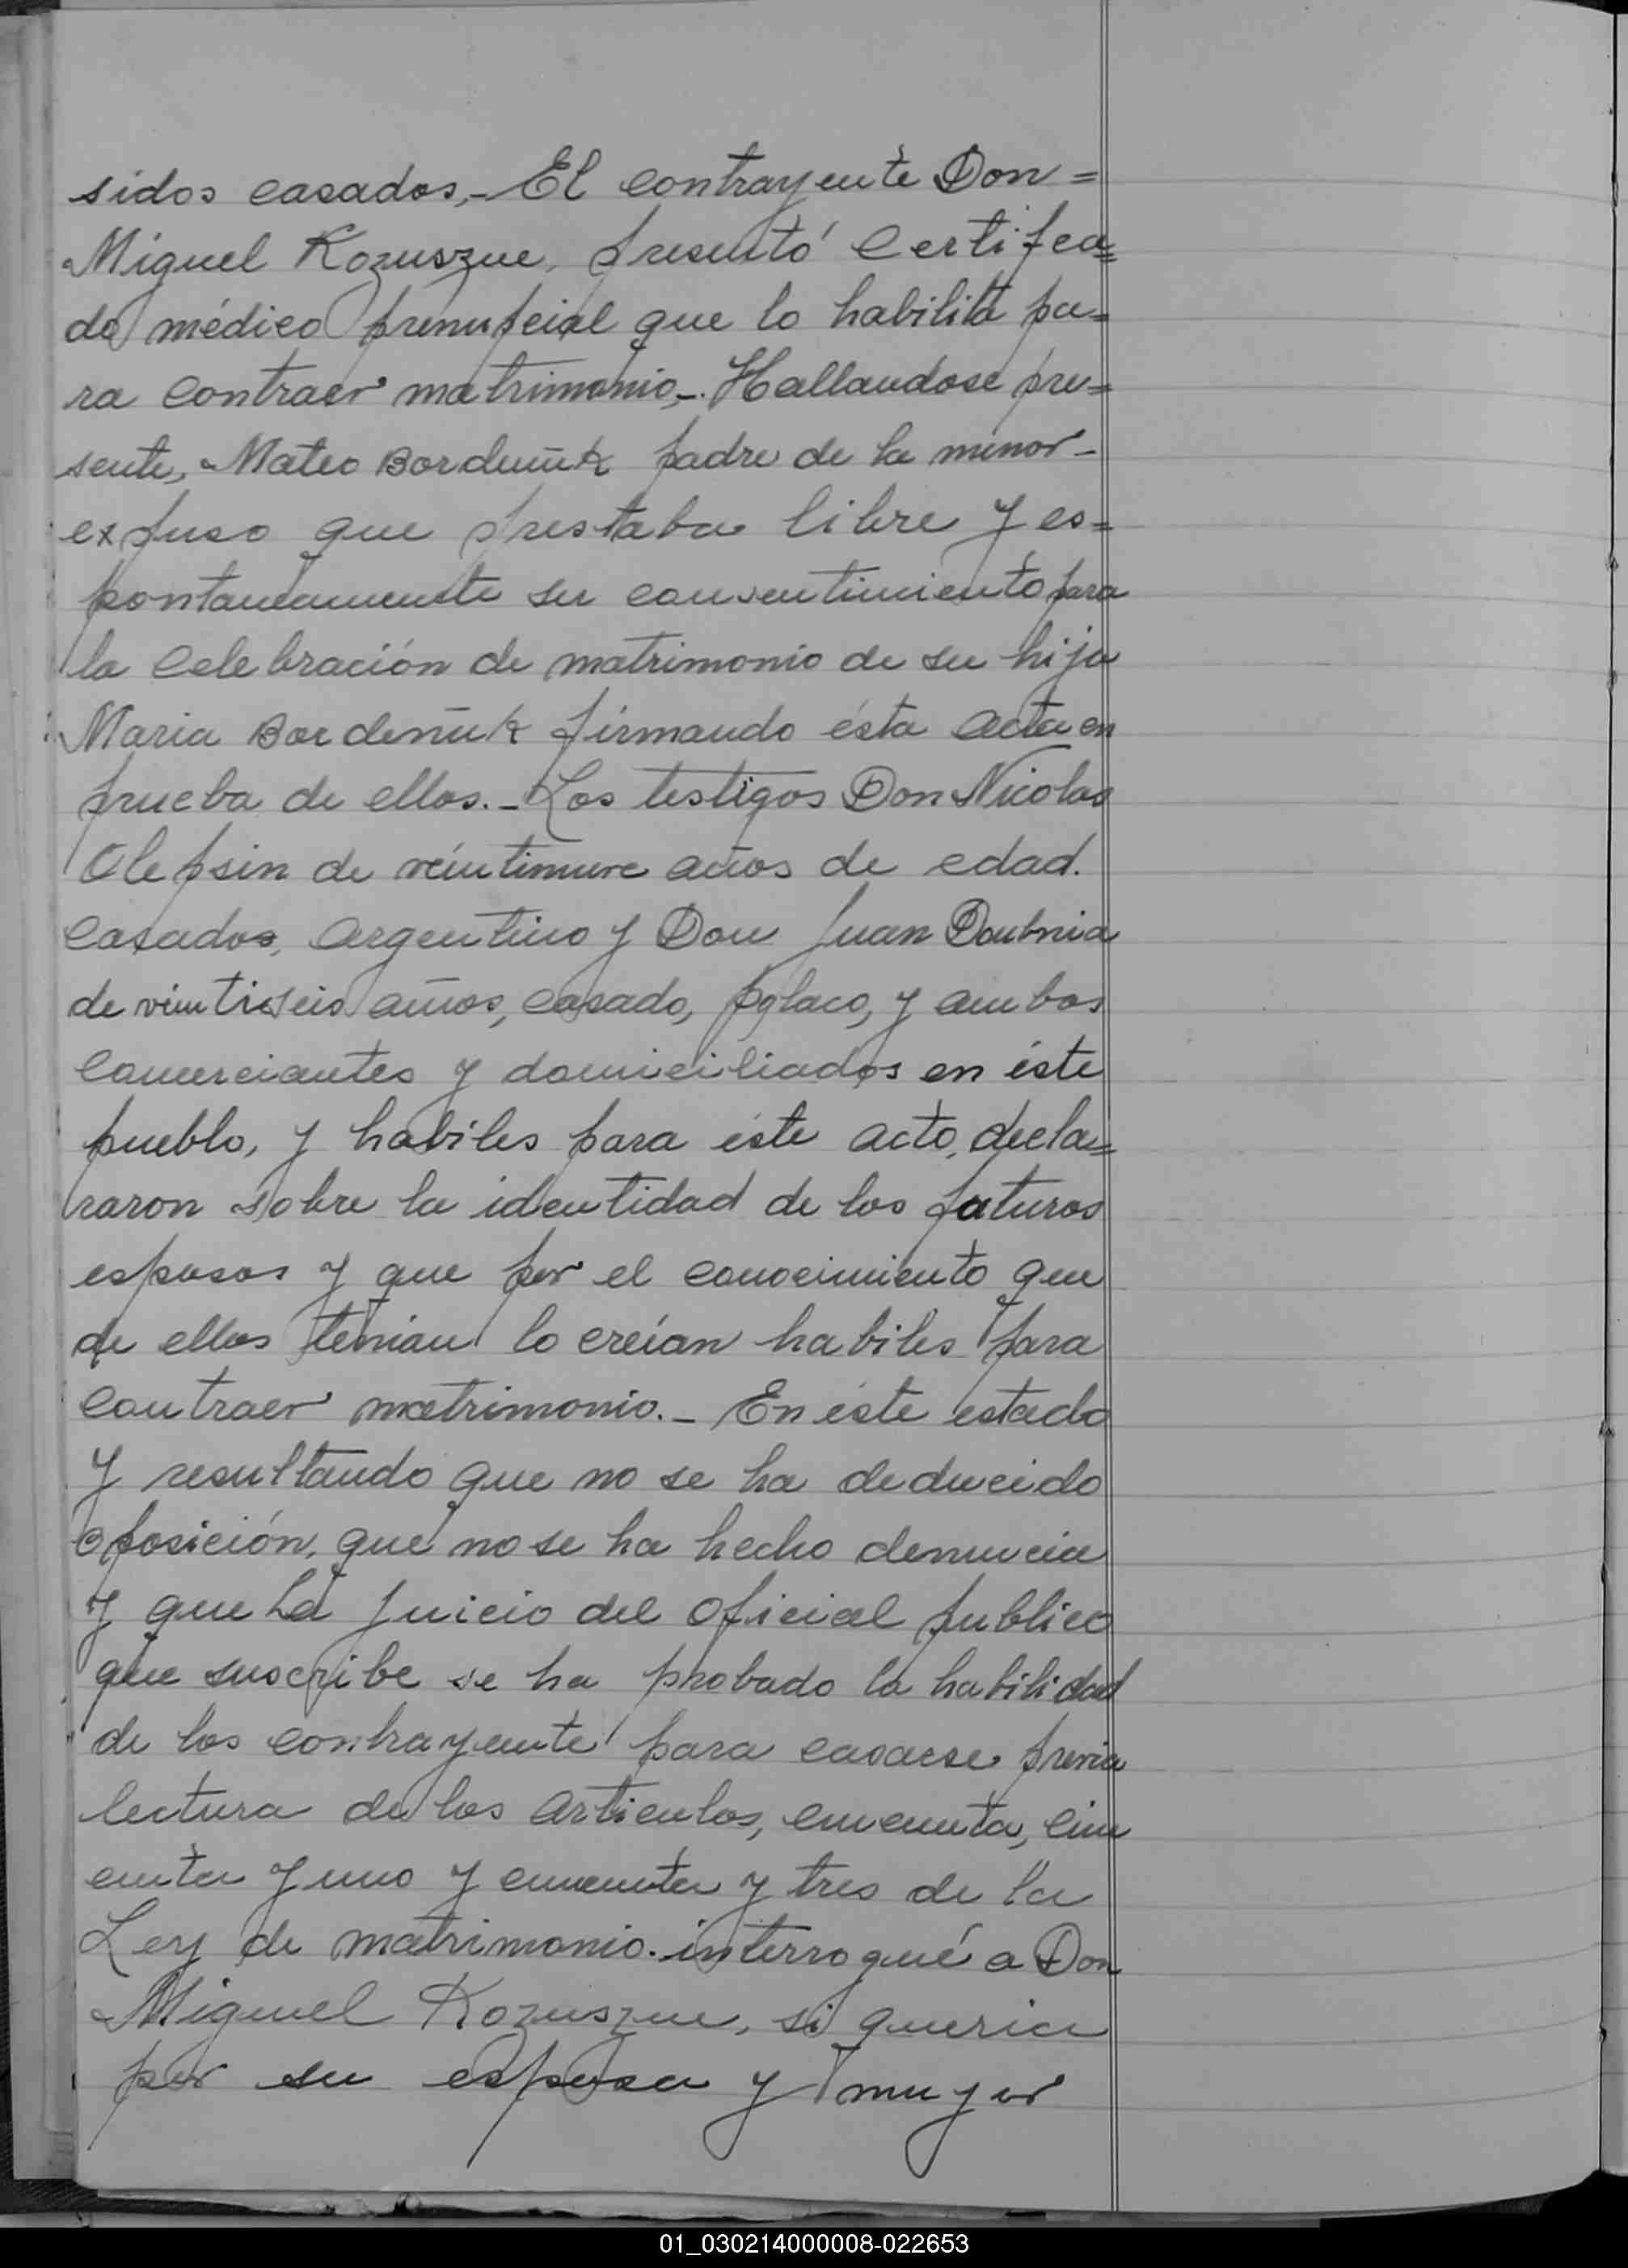 sidos casados,- El contrayente Don =
Miguel Kozuszue, presentó Certifca=
do médico prenupcial que lo habilita pa=
ra contraer matrimonio,-. Hallandose pre=
sente, Mateo Bordeñuk padre de la menor -
expuso que prestaba libre y es=
pontaneamente su consentimiento para
la Celebración de matrimonio de su hija
Maria Bordeñuk firmando ésta Acta en
prueba de ellos.- Los testigos Don Nicolas
Olepsin de veintinueve años de edad.
Casados, Argentino y Don Juan Doubnia
de veintiseis años, casado, polaco, y ambos
Comerciantes y domiciliados en éste
pueblo, y habiles para éste acto, decla=
raron sobre la identidad de los futuros
esposos y que por el conocimiento que
de ellos tenian lo creían habiles para
Contraer matrimonio.- En éste estado
y resultando que no se ha deducido
oposición, que no se ha hecho denuncia
y que a juicio del oficial publico
que suscribe se ha probado la habilidad
de los contrayente para casarse previa
lectura de los Articulos, cincuenta, cin
cuenta y uno y cincuenta y tres de la
Ley de matrimonio. interrogué a Don
Miguel Kozuszue, si queria
por su esposa y mujer
01_030214000008-022653